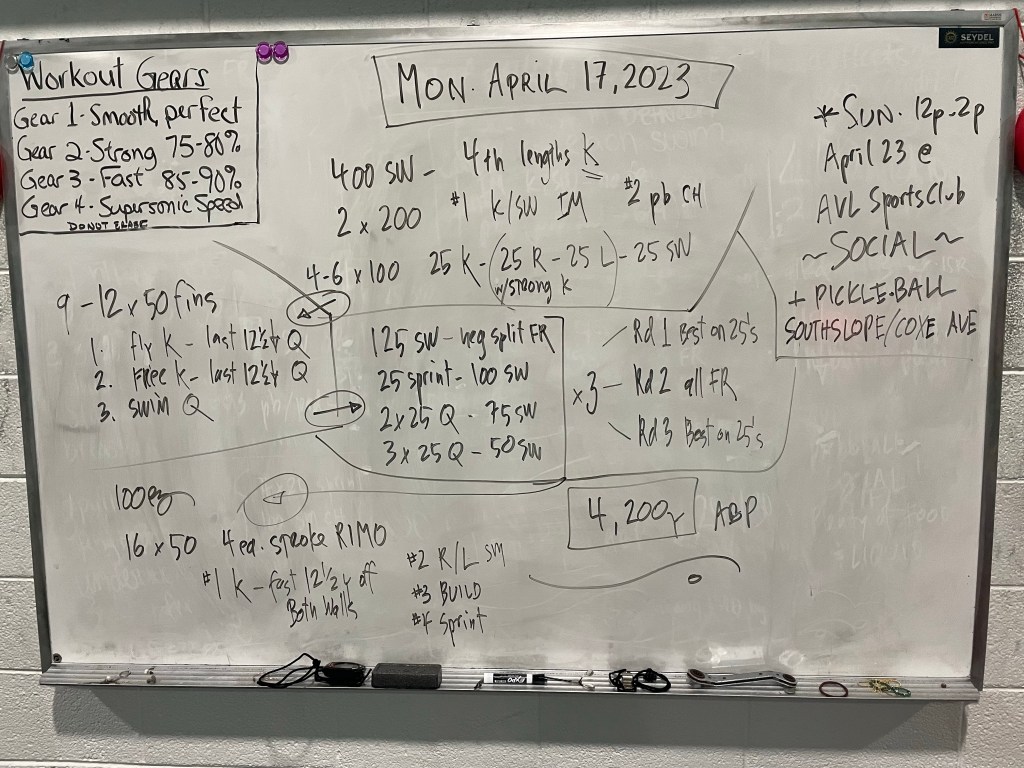 Workout Gears
Gear 1 - Smooth, perfect
Gear 2 - Strong 75-80%
Gear 3 - Fast 85-90%
Gear 4 - Supersonic Speed
DO NOT ERASE
MON. APRIL 17, 2023
SEYDEL
400 SW - 4th lengths K
2 x 200 #1 K/SW IM #2 pb CH
4-6 x 100 25 K - (25 R - 25 L) - 25 SW
w/strong K
9 - 12 x 50 fins
1. fly K - last 12½y Q
2. FREE K - last 12½y Q
3. SWIM Q
125 SW - neg split FR
25 sprint - 100 SW
2 x 25 Q - 75 SW
3 x 25 Q - 50 SW
x 3
Rd 1 Best on 25's
Rd 2 all FR
Rd 3 Best on 25's
100 ez
16 x 50 4 ea. stroke RIMO
#1 K - fast 12½y off
Both Walls
#2 R/L SM
#3 BUILD
#4 Sprint
4,200y ABP
* SUN. 12p-2p
April 23 @
AVL SportsClub
~ SOCIAL ~
+ PICKLE-BALL
SOUTHSLOPE/COXE AVE
EXPO